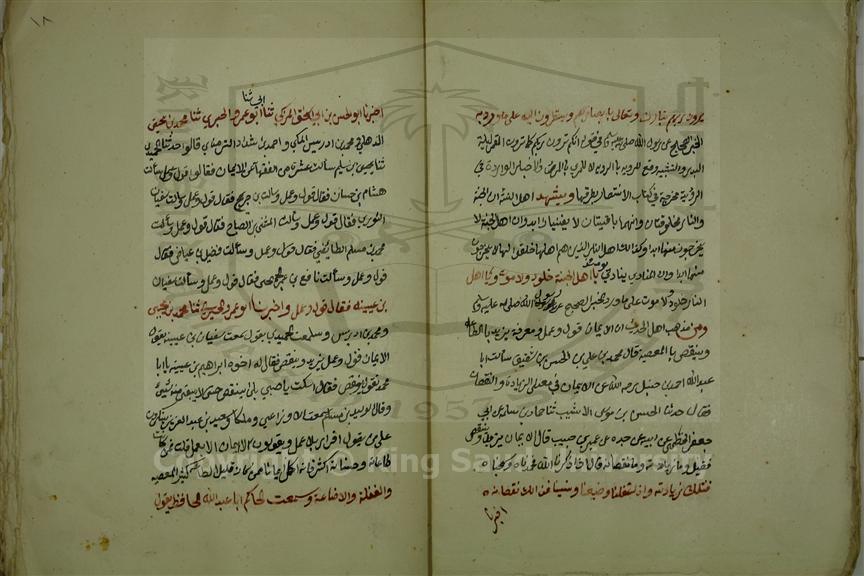 ١٨
يرون ربهم تبارك وتعالى بابصارهم وينظرون اليه على ما ورد به
الخبر الصحيح عن رسول الله صلى الله عليه وسلم في قوله انكم ترون ربكم كما ترون القمر ليلة
البدر والتشبيه وقع للروية بالروية لا للمرئي بالمرئي والاخبار الواردة في
الروية مخرجة في كتاب الانتصار بطرقها ويشهد اهل السنة ان الجنة
والنار مخلوقتان وانهما باقيتان لا يفنيان ابدا وان اهل الجنة لا
يخرجون منها ابدا وكذلك اهل النار الذين هم اهلها خلقوا لها لا يخرجون
منها ابدا وان المنادي ينادي يومئذ يا اهل الجنة خلود ولا موت ويا اهل
النار خلود ولا موت على ما ورد به الخبر الصحيح عن رسول الله صلى الله عليه وسلم
ومن مذهب اهل الحديث ان الايمان قول وعمل ومعرفة يزيد بالطاعة
وينقص بالمعصية قال محمد بن علي بن الحسن بن شقيق سالت ابا
عبدالله احمد بن حنبل رحمه الله عن الايمان في معنى الزيادة والنقصان
فقال حدثنا الحسن بن موسى الاشيب ثنا حماد بن سلمة عن ابي
جعفر الخطمي عن ابيه عن جده عن عمير بن حبيب قال الايمان يزيد وينقص
فقيل وما زيادته وما نقصانه قال اذا ذكرنا الله فحمدناه وسبحناه
فتلك زيادته واذا غفلنا وضيعنا ونسينا فذلك نقصانه
اخبرنا
اخبرنا ابو الحسن بن ابي اسحاق المزكي ثنا ابي ثنا ابو عمرو الحيري ثنا محمد بن يحيى
الذهلي ومحمد بن ادريس المكي واحمد بن شداد الترمذي قالوا حدثنا الحميدي
ثنا يحيى بن سليم سالت عشرة من الفقهاء عن الايمان فقالوا قول وعمل وسالت
هشام بن حسان فقال قول وعمل وسالت بن جريج فقال قول وعمل وسالت سفيان
الثوري فقال قول وعمل وسالت المثنى بن الصباح فقال قول وعمل وسالت
محمد بن مسلم الطائفي فقال قول وعمل وسالت فضيل بن عياض فقال
قول وعمل وسالت نافع بن عمر الجمحي فقال قول وعمل وسالت سفيان
بن عيينه فقال قول وعمل واخبرنا ابو عمرو الحيري ثنا محمد بن يحيى
ومحمد بن ادريس وسمعت الحميدي يقول سمعت سفيان بن عيينة يقول
الايمان قول وعمل يزيد وينقص فقال له اخوه ابراهيم بن عيينة يا ابا
محمد تقول ينقص فقال اسكت يا صبي بلى ينقص حتى لا يبقى منه شيئ
وقال الوليد بن مسلم سمعت الاوزاعي ومالكا وسعيد بن عبد العزيز ينكرون
على من يقول اقرار بلا عمل ويقولون لا ايمان الا بعمل قلت فمن كانت
طاعاته وحسناته كثر فانه اكمل ايمانا ممن كان قليل الطاعة كثير المعصية
والغفلة والاضاعة وسمعت الحاكم ابا عبدالله الحافظ يقول
Copyright © King Saud University
1957